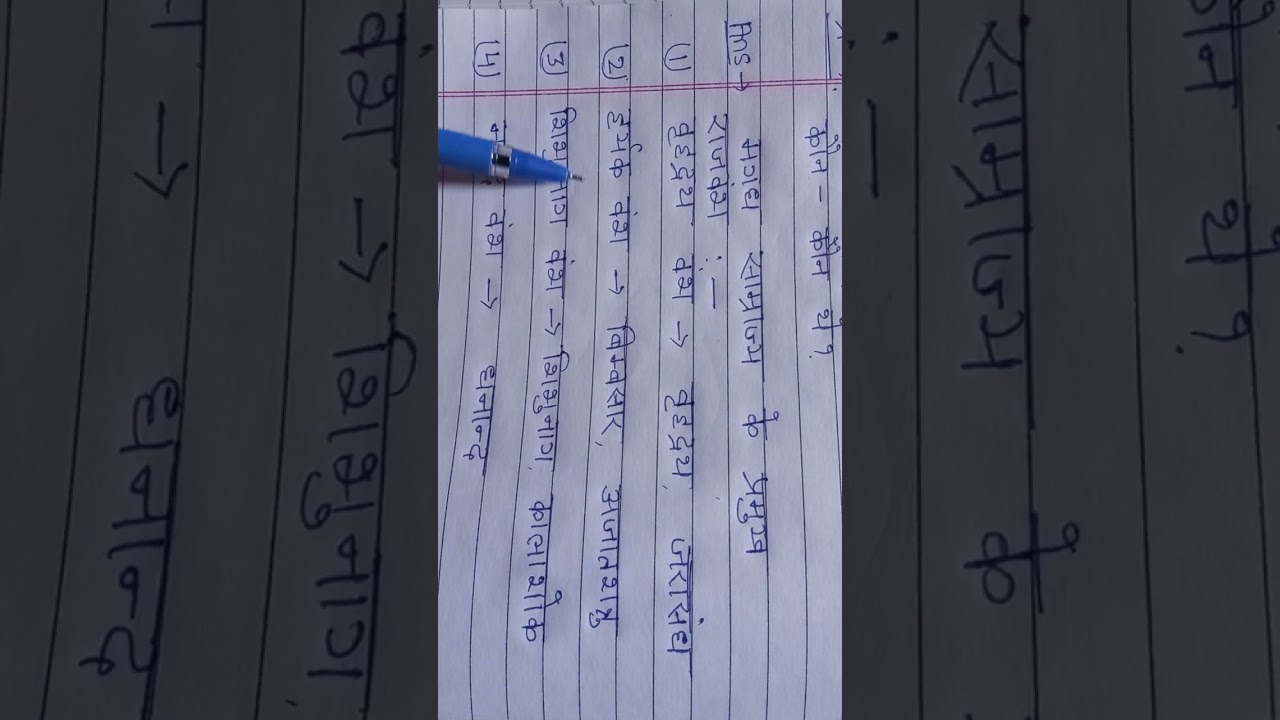 कौन - कौन थे ?
Ans → मगध साम्राज्य के प्रमुख
राजवंश :—
(1) वृहद्रथ वंश → वृहद्रथ, जरासंध
(2) हर्यक वंश → बिम्बसार, अजातशत्रु
(3) वंश → शिशुनाग, कालाशोक
(4) वंश → धनान्द